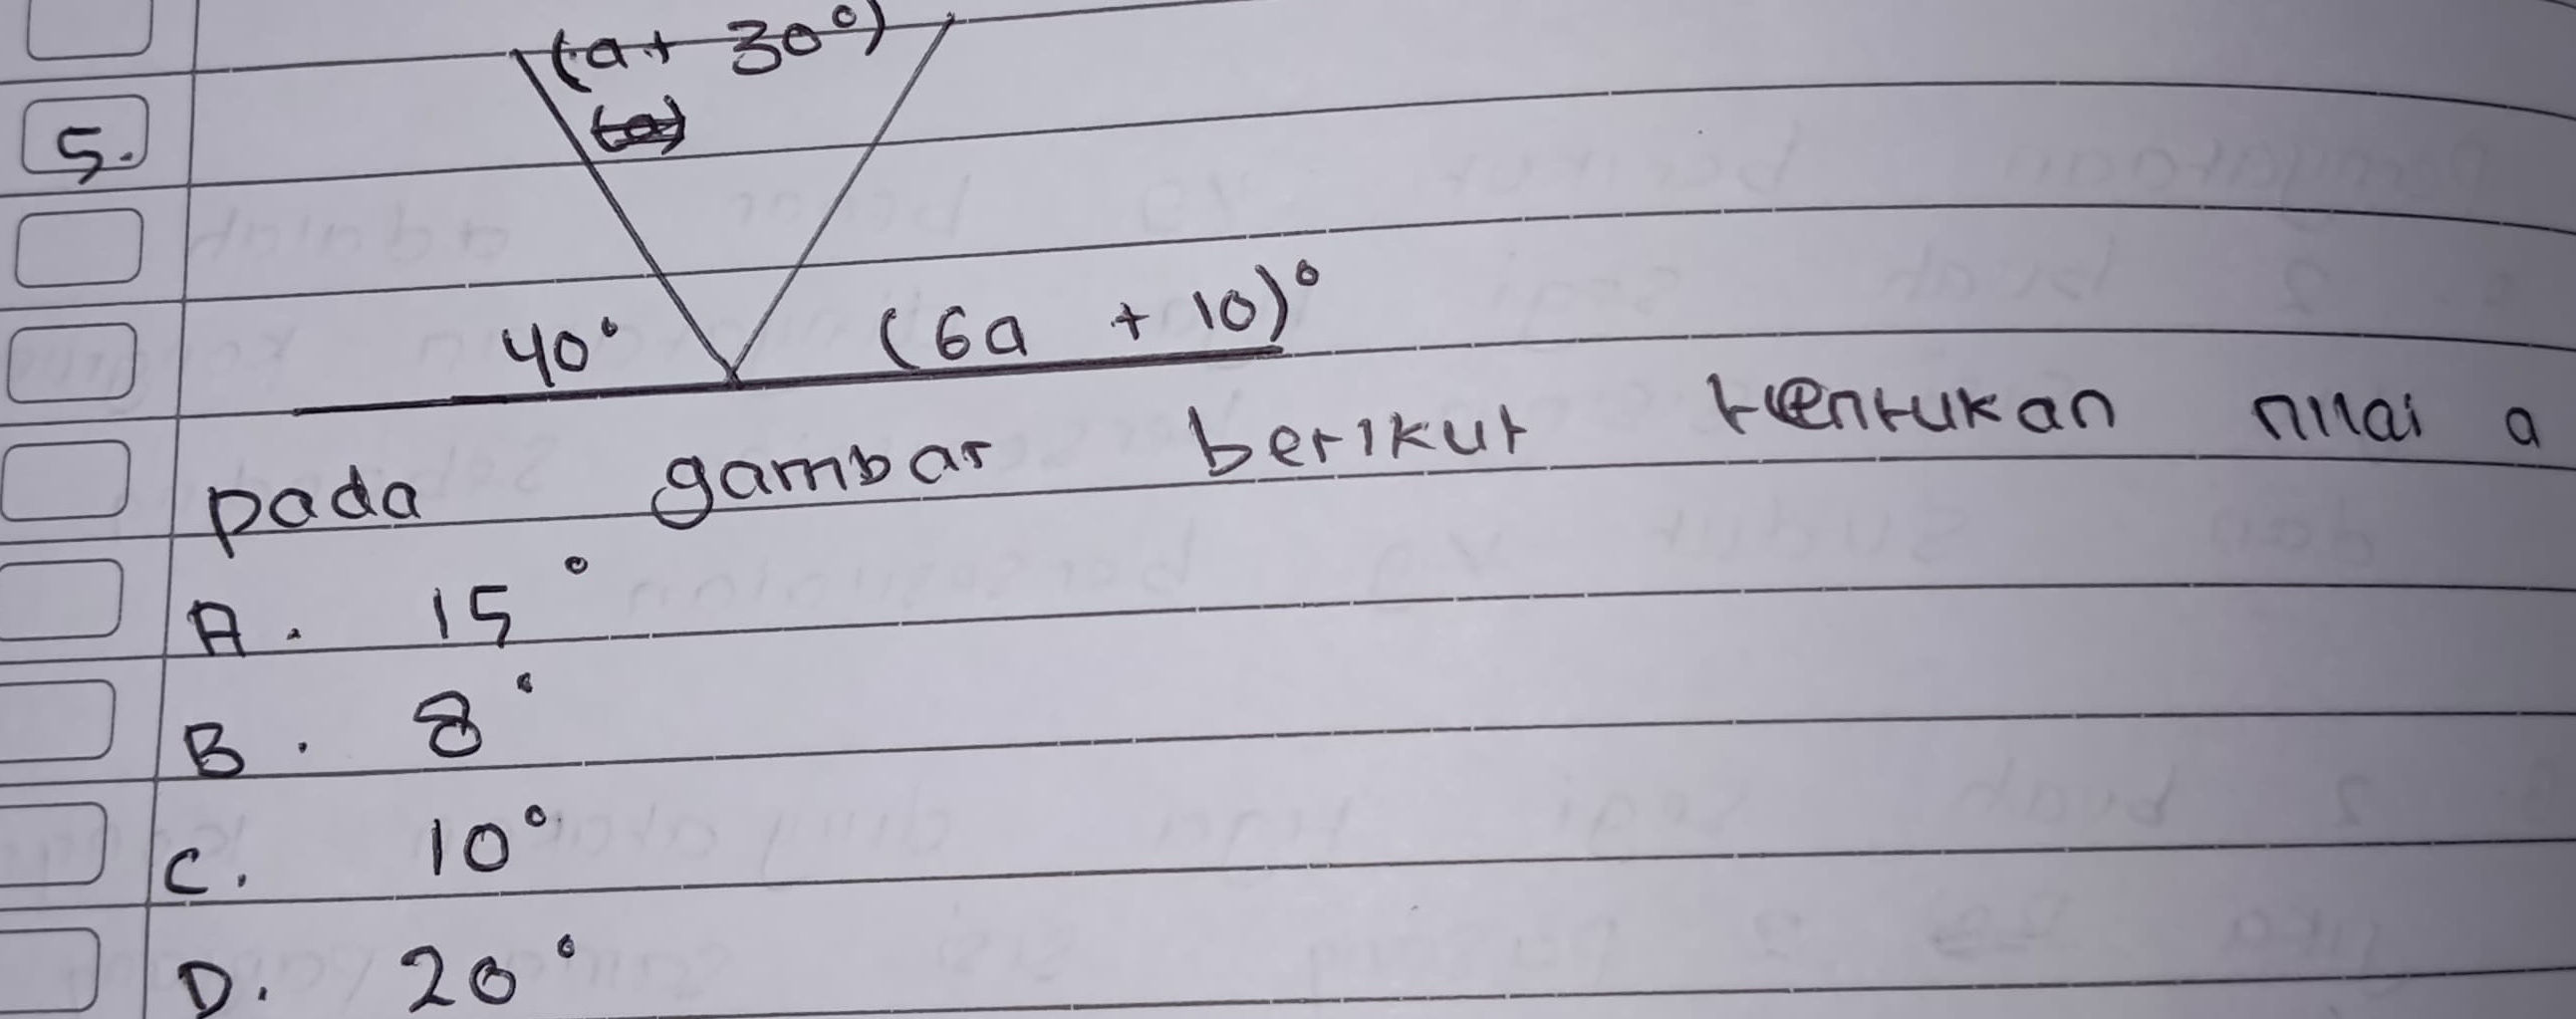 (a + 30°)
5.
40° (6a + 10)°
pada gambar berikut tentukan nilai a
A. 15°
B. 8°
C. 10°
D. 20°